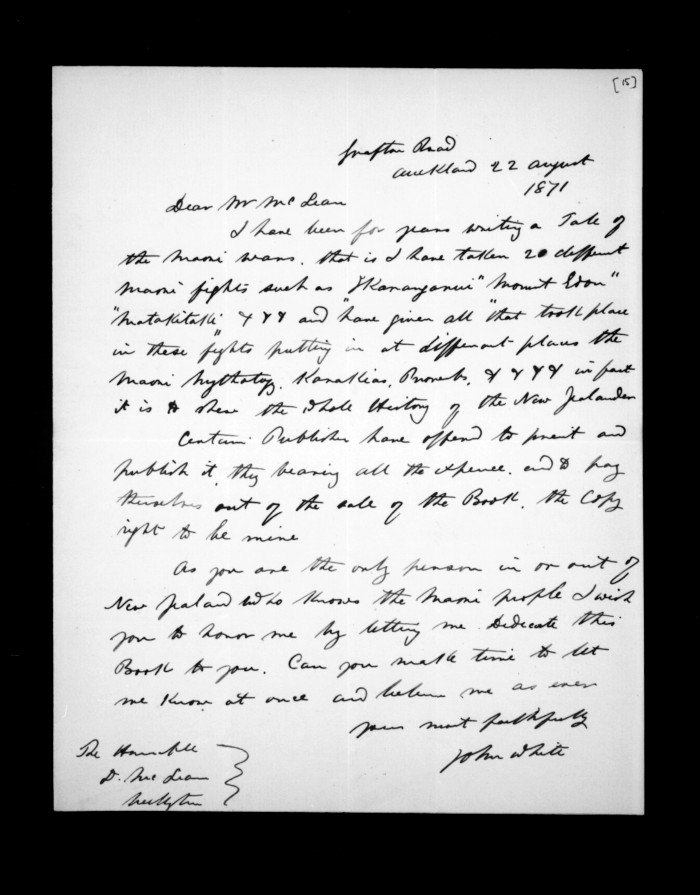 [15]
Grafton Road
Auckland 22 August
1871
Dear Mr McLean
I have been for years writing a Tale of
the Maori wars. that is I have taken 20 different
Maori fights such as "Mount Eden"
"Matakitaki" & & & and have given all that took place
in these fights putting in at different places the
Maori Mythology, Karakias, Proverbs, & & & & in fact
it is to shew the whole History of the New Zealander
Certain Publisher have offered to print and
publish it, they bearing all the expence. and to pay
themselves out of the sale of the Book. the Copy
right to be mine
As you are the only person in or out of
New Zealand who knows the Maori people I wish
you to honor me by letting me Dedicate this
Book to you. Can you make time to let
me know at once and believe me as ever
yours most faithfully
John White
The Honorable
D. McLean
Wellington